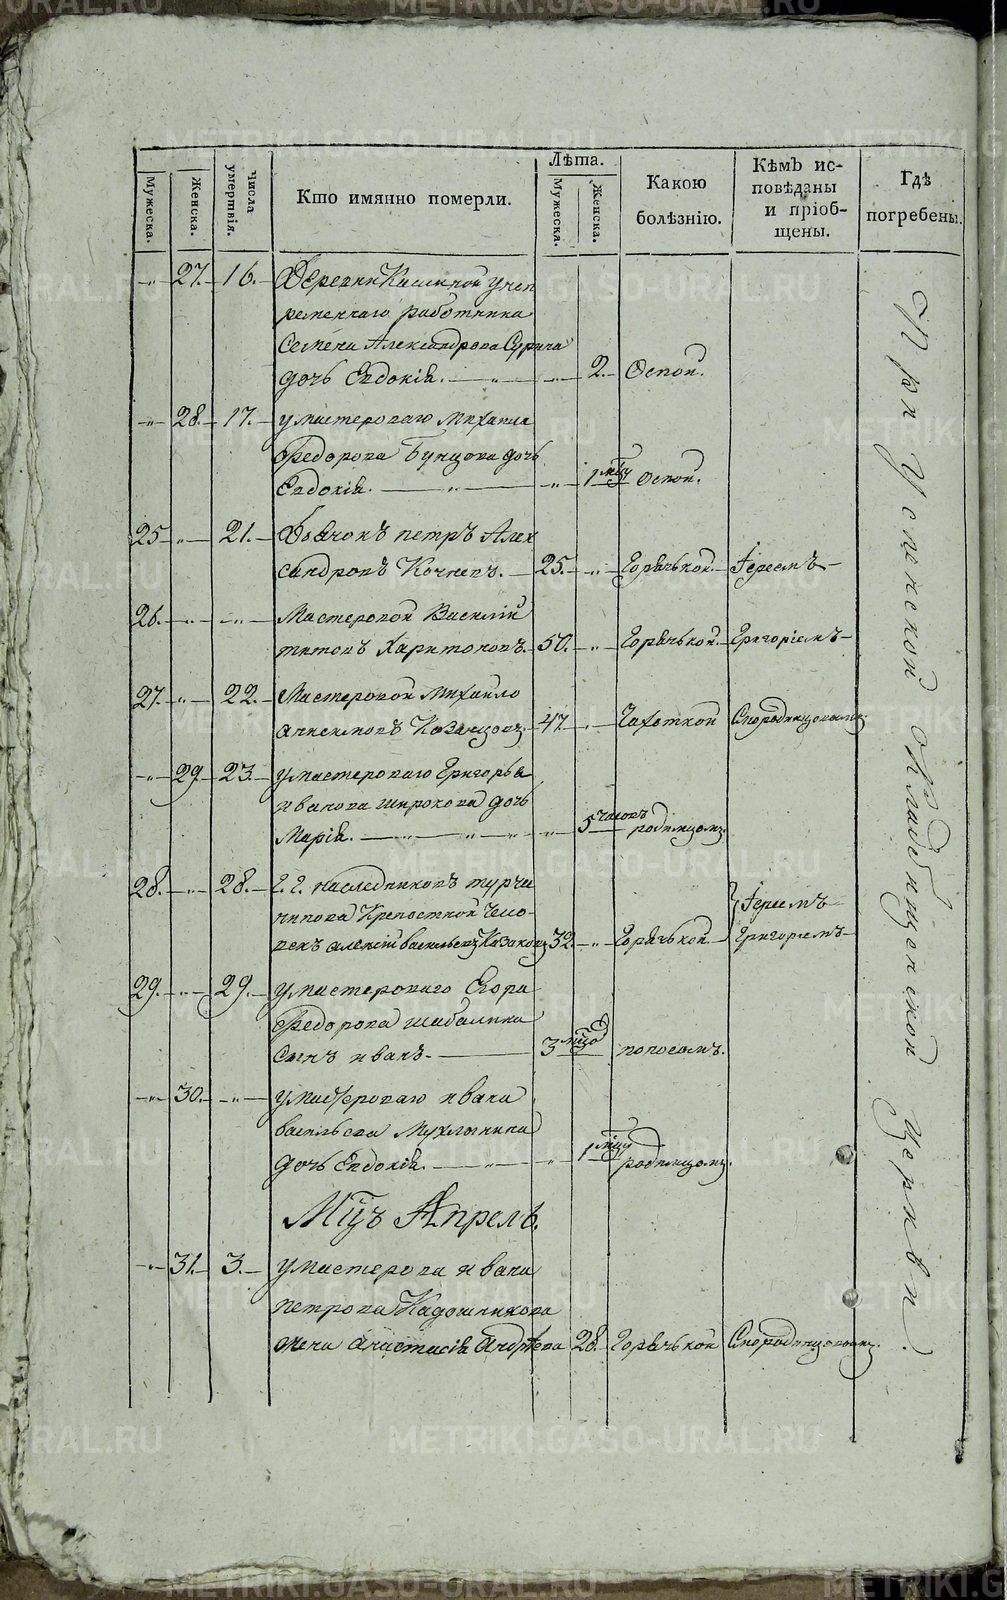 Мужеска.
Женска.
числа умертвія.
Кто имянно померли.
Лѣта.
Мужеска.
Женска.
Какою болѣзнію.
Кѣмъ ис-
повѣданы
и пріоб-
щены.
Гдѣ
погребены.
27. 16. Деревни
ременнаго работника
Семена Александрова
дочь Евдокія. 2. Оспой.
28. 17. у мастероваго Михаила
Федорова Бунцова дочь
Евдокія. 1 мцу Оспой.
25 21. Петръ Алек
сандровъ Кочневъ. 25. Горячькой. Іереемъ
26. Мастеровой Василій
Титовъ Харитоновъ. 50. Горячькой. Григоріемъ
27. 22. Мастеровой Михайло
Анисимовъ Казанцовъ. 47. Чахоткой
29 23. у мастероваго Григорья
Иванова Широкова дочь
Марія. 5 часовъ родимцомъ
28. 28. Г. Г. наслѣдниковъ Турча
нинова Крепостной чело- Іереемъ
векъ Алексѣй Васильевъ Казаковъ 32 Горячькой Григоріемъ
29. 29. у мастероваго Егора
Федорова Шабалина
сынъ Иванъ. 3 поносомъ.
30. у мастероваго Ивана
Васильева Мухлынина
дочь Евдокія. 1 мцу родимцомъ.
Мцъ Апрель.
31. 3. у мастерова Ивана
Петрова Кадошникова
жена Анастасія Андрѣева 28. Горячькой
При Успенской кладбищенской церкви.
METRIKI.GASO-URAL.RU